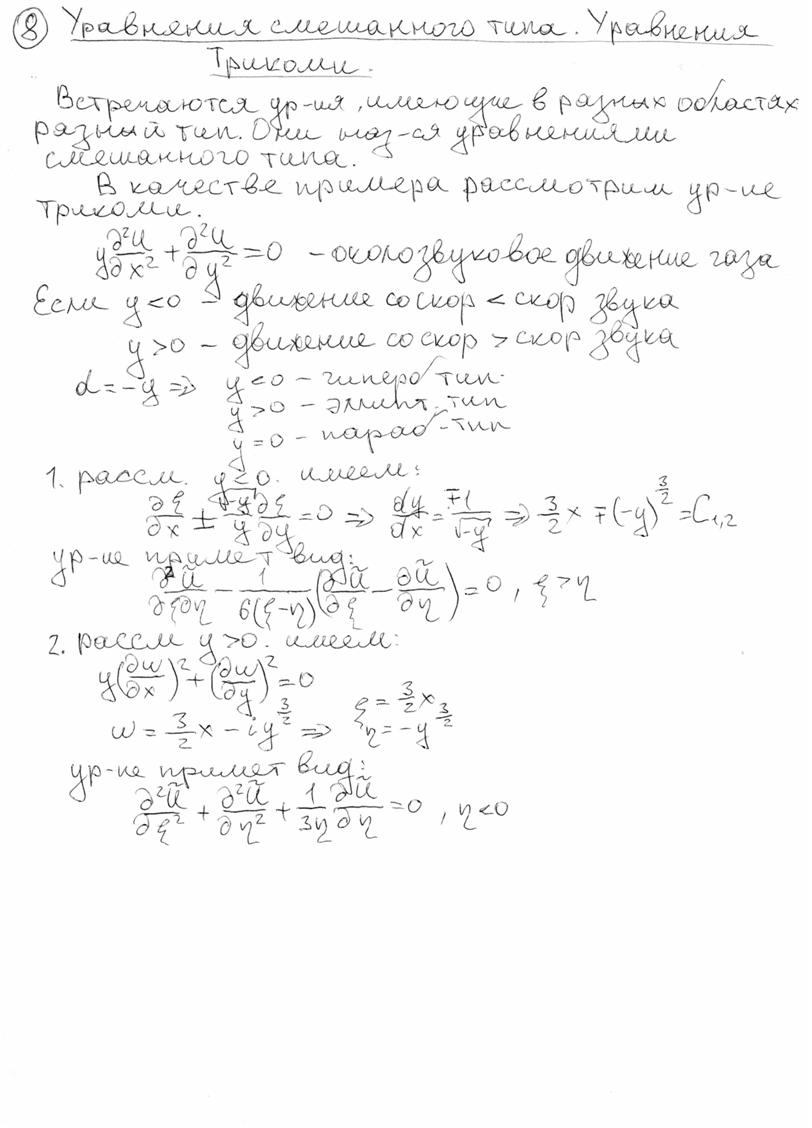 ⑧ Уравнения смешанного типа. Уравнения
Трикоми.
Встречаются ур-ия, имеющие в разных областях
разный тип. Они наз-ся уравнениями
смешанного типа.
В качестве примера рассмотрим ур-ие
Трикоми.
y ∂²U/∂x² + ∂²U/∂y² = 0 – околозвуковое движение газа
Если y<0 – движение со скор < скор звука
y>0 – движение со скор > скор звука
d = -y ⇒ y<0 – гиперб тип.
y>0 – эллипт. тип
y=0 – параб-тип
1. рассм. y<0. имеем:
∂ξ/∂x ± √-y/y ∂ξ/∂y = 0 ⇒ dy/dx = ∓1/√-y ⇒ 3/2 x ∓ (-y)^{3/2} = C₁,₂
ур-ие примет вид:
∂²Ũ/∂ξ∂η − 1/6(ξ-η) (∂Ũ/∂ξ − ∂Ũ/∂η) = 0, ξ>η
2. рассм y>0. имеем:
y(∂w/∂x)² + (∂w/∂y)² = 0
w = 3/2 x − iy^{3/2} ⇒ ξ = 3/2 x
η = -y^{3/2}
ур-ие примет вид:
∂²Ũ/∂ξ² + ∂²Ũ/∂η² + 1/3η ∂Ũ/∂η = 0, η<0